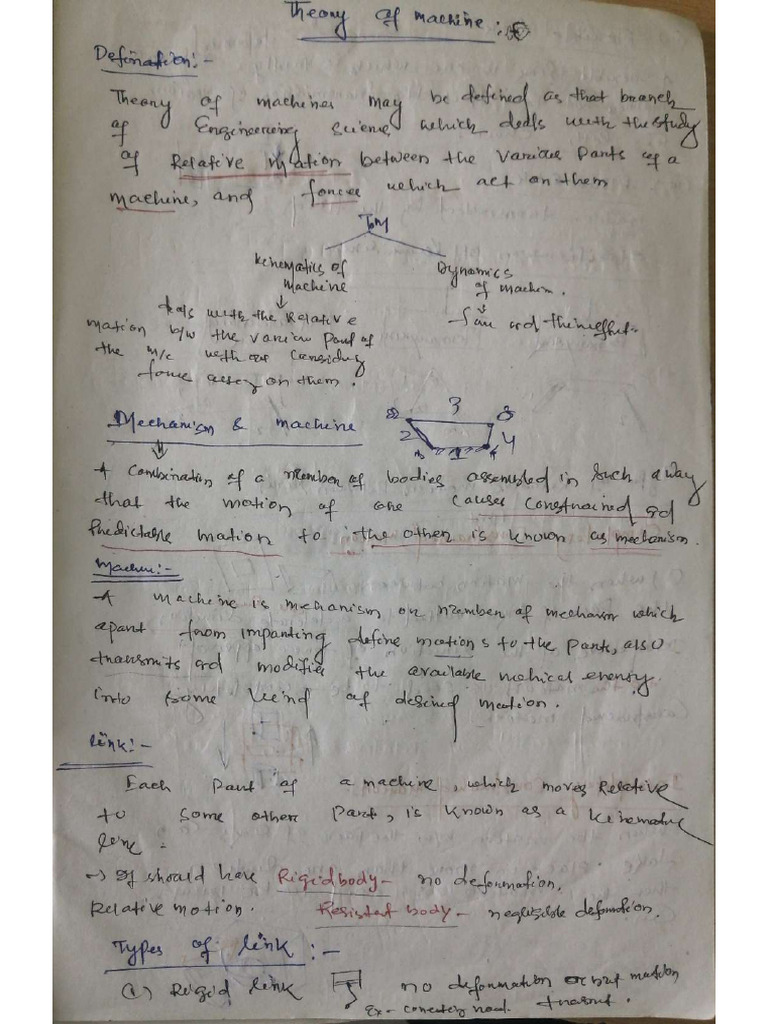 Theory of machine :-
Defination:-
Theory of machines may be defined as that branch
of Engineering Science, which deals with the study
of Relative Motion between the Various Parts of a
machine, and forces which act on them
TOM
Kinematics of
Machine
Dynamics
of machin.
deals with the Relative
motion b/w the various Part of
the m/c without Considing
force on them.
and their effect.
Mechanism & machine
3
2
4
1
A Combination of a number of bodies assembled in Such a way
that the motion of one causes constrained and
Predictable motion to the other is known as mechanism.
Machin:-
A machine is mechanism or number of mechanism which
apart from imparting define motions to the parts, also
transmits and modifies the available energy
into some kind of desired motion.
link:-
Each Part of a machine, which moves Relative
to some other Part, is known as a Kinematic
link.
→ It should have Rigid body - no deformation.
Relative motion. Resistant body - negligible deformation.
Types of link :-
(1) Rigid link no deformation motion
Ex - conecting rod.